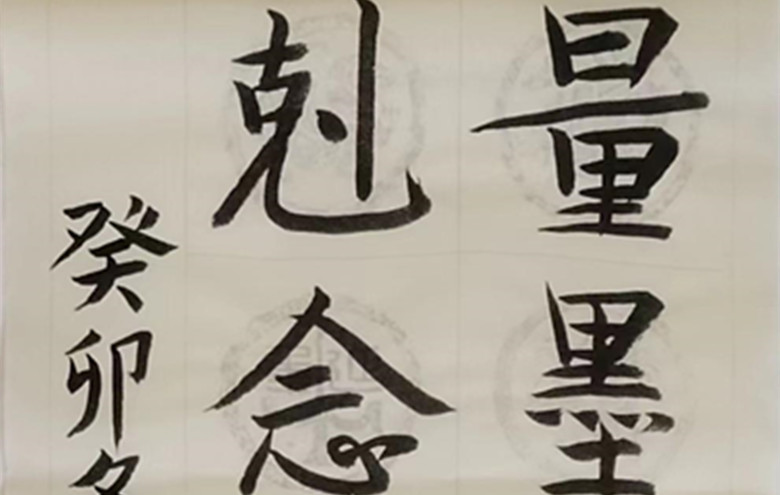 量墨
剋念
癸卯冬